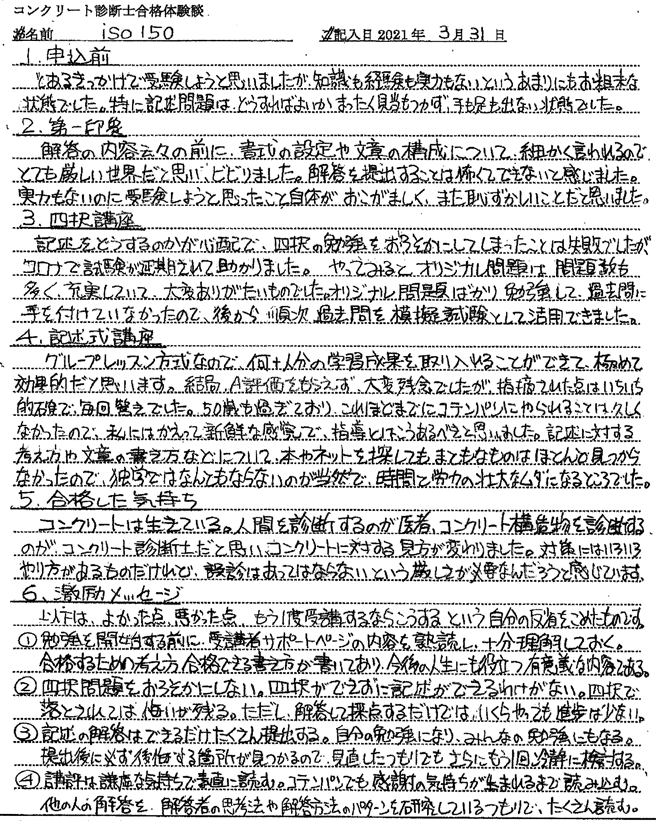 コンクリート診断士合格体験談
名前 iso150 記入日 2021年 3月31日
1.申込前
とあるきっかけで受験しようと思いましたが、知識も経験も実力もないというあまりにもお粗末な
状態でした。特に記述問題は、どうすればよいかまったく見当もつかず、手も足も出ない状態でした。
2.第一印象
解答の内容云々の前に、書式の設定や文章の構成について、細かく言われるので
とても厳しい世界だと思い、ビビりました。解答を提出することは怖くてできないと感じました。
実力もないのに受験しようと思ったこと自体が、おこがましく、また恥ずかしいことだと思いました。
3.四択講座
記述をどうするのかが心配で、四択の勉強をおろそかにしてしまったことは失敗でしたが
コロナで試験が延期されて助かりました。やってみると、オリジナル問題は、問題数も
多く、充実していて、大変ありがたいものでした。オリジナル問題ばかり勉強して、過去問に
手を付けていなかったので、後から順次過去問を模擬試験として活用できました。
4.記述式講座
グループレッスン方式なので、何十人分の学習成果を取り入れることができて、極めて
効果的だと思います。結局、A評価をもらえず、大変残念でしたが、指摘された点はいちいち
的確で、毎回驚きでした。50歳も過ぎており、これほどまでにコテンパンにやられることは久しく
なかったので、私にはかえって新鮮な感覚で、指導とはこうあるべきと思いました。記述に対する
考え方や文章の書き方などについて、本やネットを探してもまともなものはほとんど見つから
なかったので、独学ではなんともならないのが当然で、時間と労力の壮大なムダになるところでした。
5.合格した気持ち
コンクリートは生きている。人間を診断するのが医者、コンクリート構造物を診断する
のが、コンクリート診断士だと思い、コンクリートに対する見方が変わりました。対策にはいろいろ
やり方があるものだけれど、誤診はあってはならないという厳しさが必要なんだろうと感じています。
6.激励メッセージ
以下は、よかった点、悪かった点、もう1度受講するならこうするという自分の反省をこめたものです。
①勉強を開始する前に、受講者サポートページの内容を熟読し、十分理解しておく。
合格するための考え方、合格できる書き方が書いてあり、今後の人生にも役立つ有意義な内容である。
②四択問題をおろそかにしない。四択ができずに記述ができるわけがない。四択で
落とされては悔いが残る。ただし、解答して採点するだけでは、いくらやっても進歩は少ない。
③記述の解答はできるだけたくさん提出する。自分の勉強になり、みんなの勉強にもなる。
提出後に必ず後悔する箇所が見つかるので、見直したつもりでもさらにもう1回冷静に検討する。
④講評は謙虚な気持ちで素直に読む。コテンパンでも感謝の気持ちが生まれるまで読み込む。
他の人の解答を、解答者の思考法や解答方法のパターンを研究しているつもりで、たくさん読む。